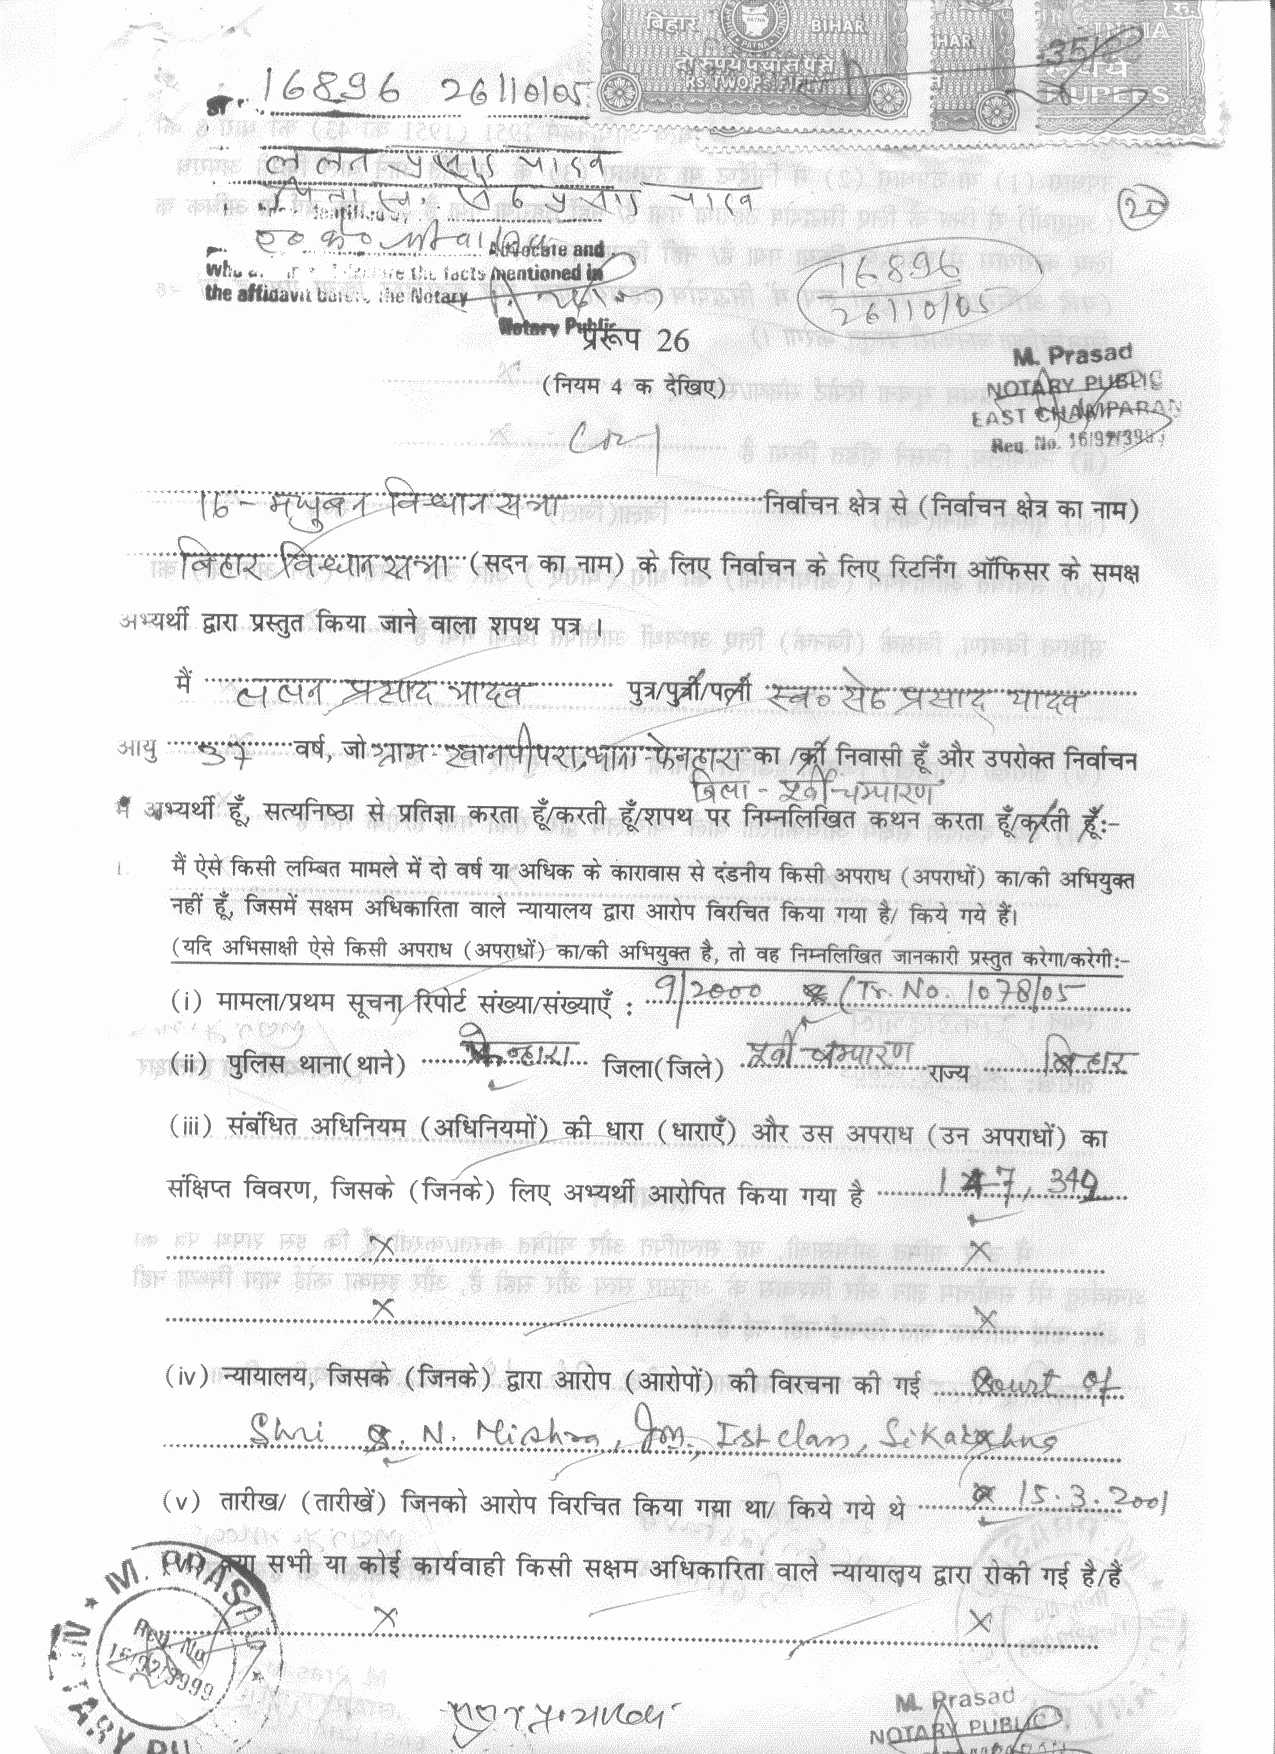 बिहार BIHAR
दो रुपये पचीस पैसे
RS TWO P
HAR
INDIA
रु.
रुपये
RUPEES
35/-
16896 26/10/05
ललन प्रसाद यादव
पिता स्व. सेठ प्रसाद यादव
Identified by
Advocate and
the facts mentioned in
the affidavit before the Notary
Notary Public
20
16896
26/10/05
प्ररूप 26
(नियम 4 क देखिए)
M. Prasad
NOTARY PUBLIC
EAST CHAMPARAN
Reg. No. 16/92/3999
16 - मधुबन विधान सभा निर्वाचन क्षेत्र से (निर्वाचन क्षेत्र का नाम)
बिहार विधान सभा (सदन का नाम) के लिए निर्वाचन के लिए रिटर्निंग ऑफिसर के समक्ष
अभ्यर्थी द्वारा प्रस्तुत किया जाने वाला शपथ पत्र ।
मैं ललन प्रसाद यादव पुत्र/पुत्री/पत्नी स्व० सेठ प्रसाद यादव
आयु 37 वर्ष, जो ग्राम- खानपीपरा, थाना- फेनहारा का /की निवासी हूँ और उपरोक्त निर्वाचन
जिला - पूर्वी चम्पारण
में अभ्यर्थी हूँ, सत्यनिष्ठा से प्रतिज्ञा करता हूँ/करती हूँ/शपथ पर निम्नलिखित कथन करता हूँ/करती हूँ:-
1. मैं ऐसे किसी लम्बित मामले में दो वर्ष या अधिक के कारावास से दंडनीय किसी अपराध (अपराधों) का/की अभियुक्त
नहीं हूँ, जिसमें सक्षम अधिकारिता वाले न्यायालय द्वारा आरोप विरचित किया गया है/ किये गये हैं।
(यदि अभिसाक्षी ऐसे किसी अपराध (अपराधों) का/की अभियुक्त है, तो वह निम्नलिखित जानकारी प्रस्तुत करेगा/करेगी:-
(i) मामला/प्रथम सूचना रिपोर्ट संख्या/संख्याएँ : 9/2000 (Tr. No. 1078/05
(ii) पुलिस थाना(थाने) फेनहारा जिला(जिले) पूर्वी चम्पारण राज्य बिहार
(iii) संबंधित अधिनियम (अधिनियमों) की धारा (धाराएँ) और उस अपराध (उन अपराधों) का
संक्षिप्त विवरण, जिसके (जिनके) लिए अभ्यर्थी आरोपित किया गया है 147, 349
x x
x x
(iv) न्यायालय, जिसके (जिनके) द्वारा आरोप (आरोपों) की विरचना की गई Court of
Shri S. N. Mishra, Jm. Ist class,
(v) तारीख/ (तारीखें) जिनको आरोप विरचित किया गया था/ किये गये थे 15.3.2001
(vi) क्या सभी या कोई कार्यवाही किसी सक्षम अधिकारिता वाले न्यायालय द्वारा रोकी गई है/हैं
x x
M. PRASAD
Reg. No
16/92/3999
NOTARY PU
M. Prasad
NOTARY PUBLIC